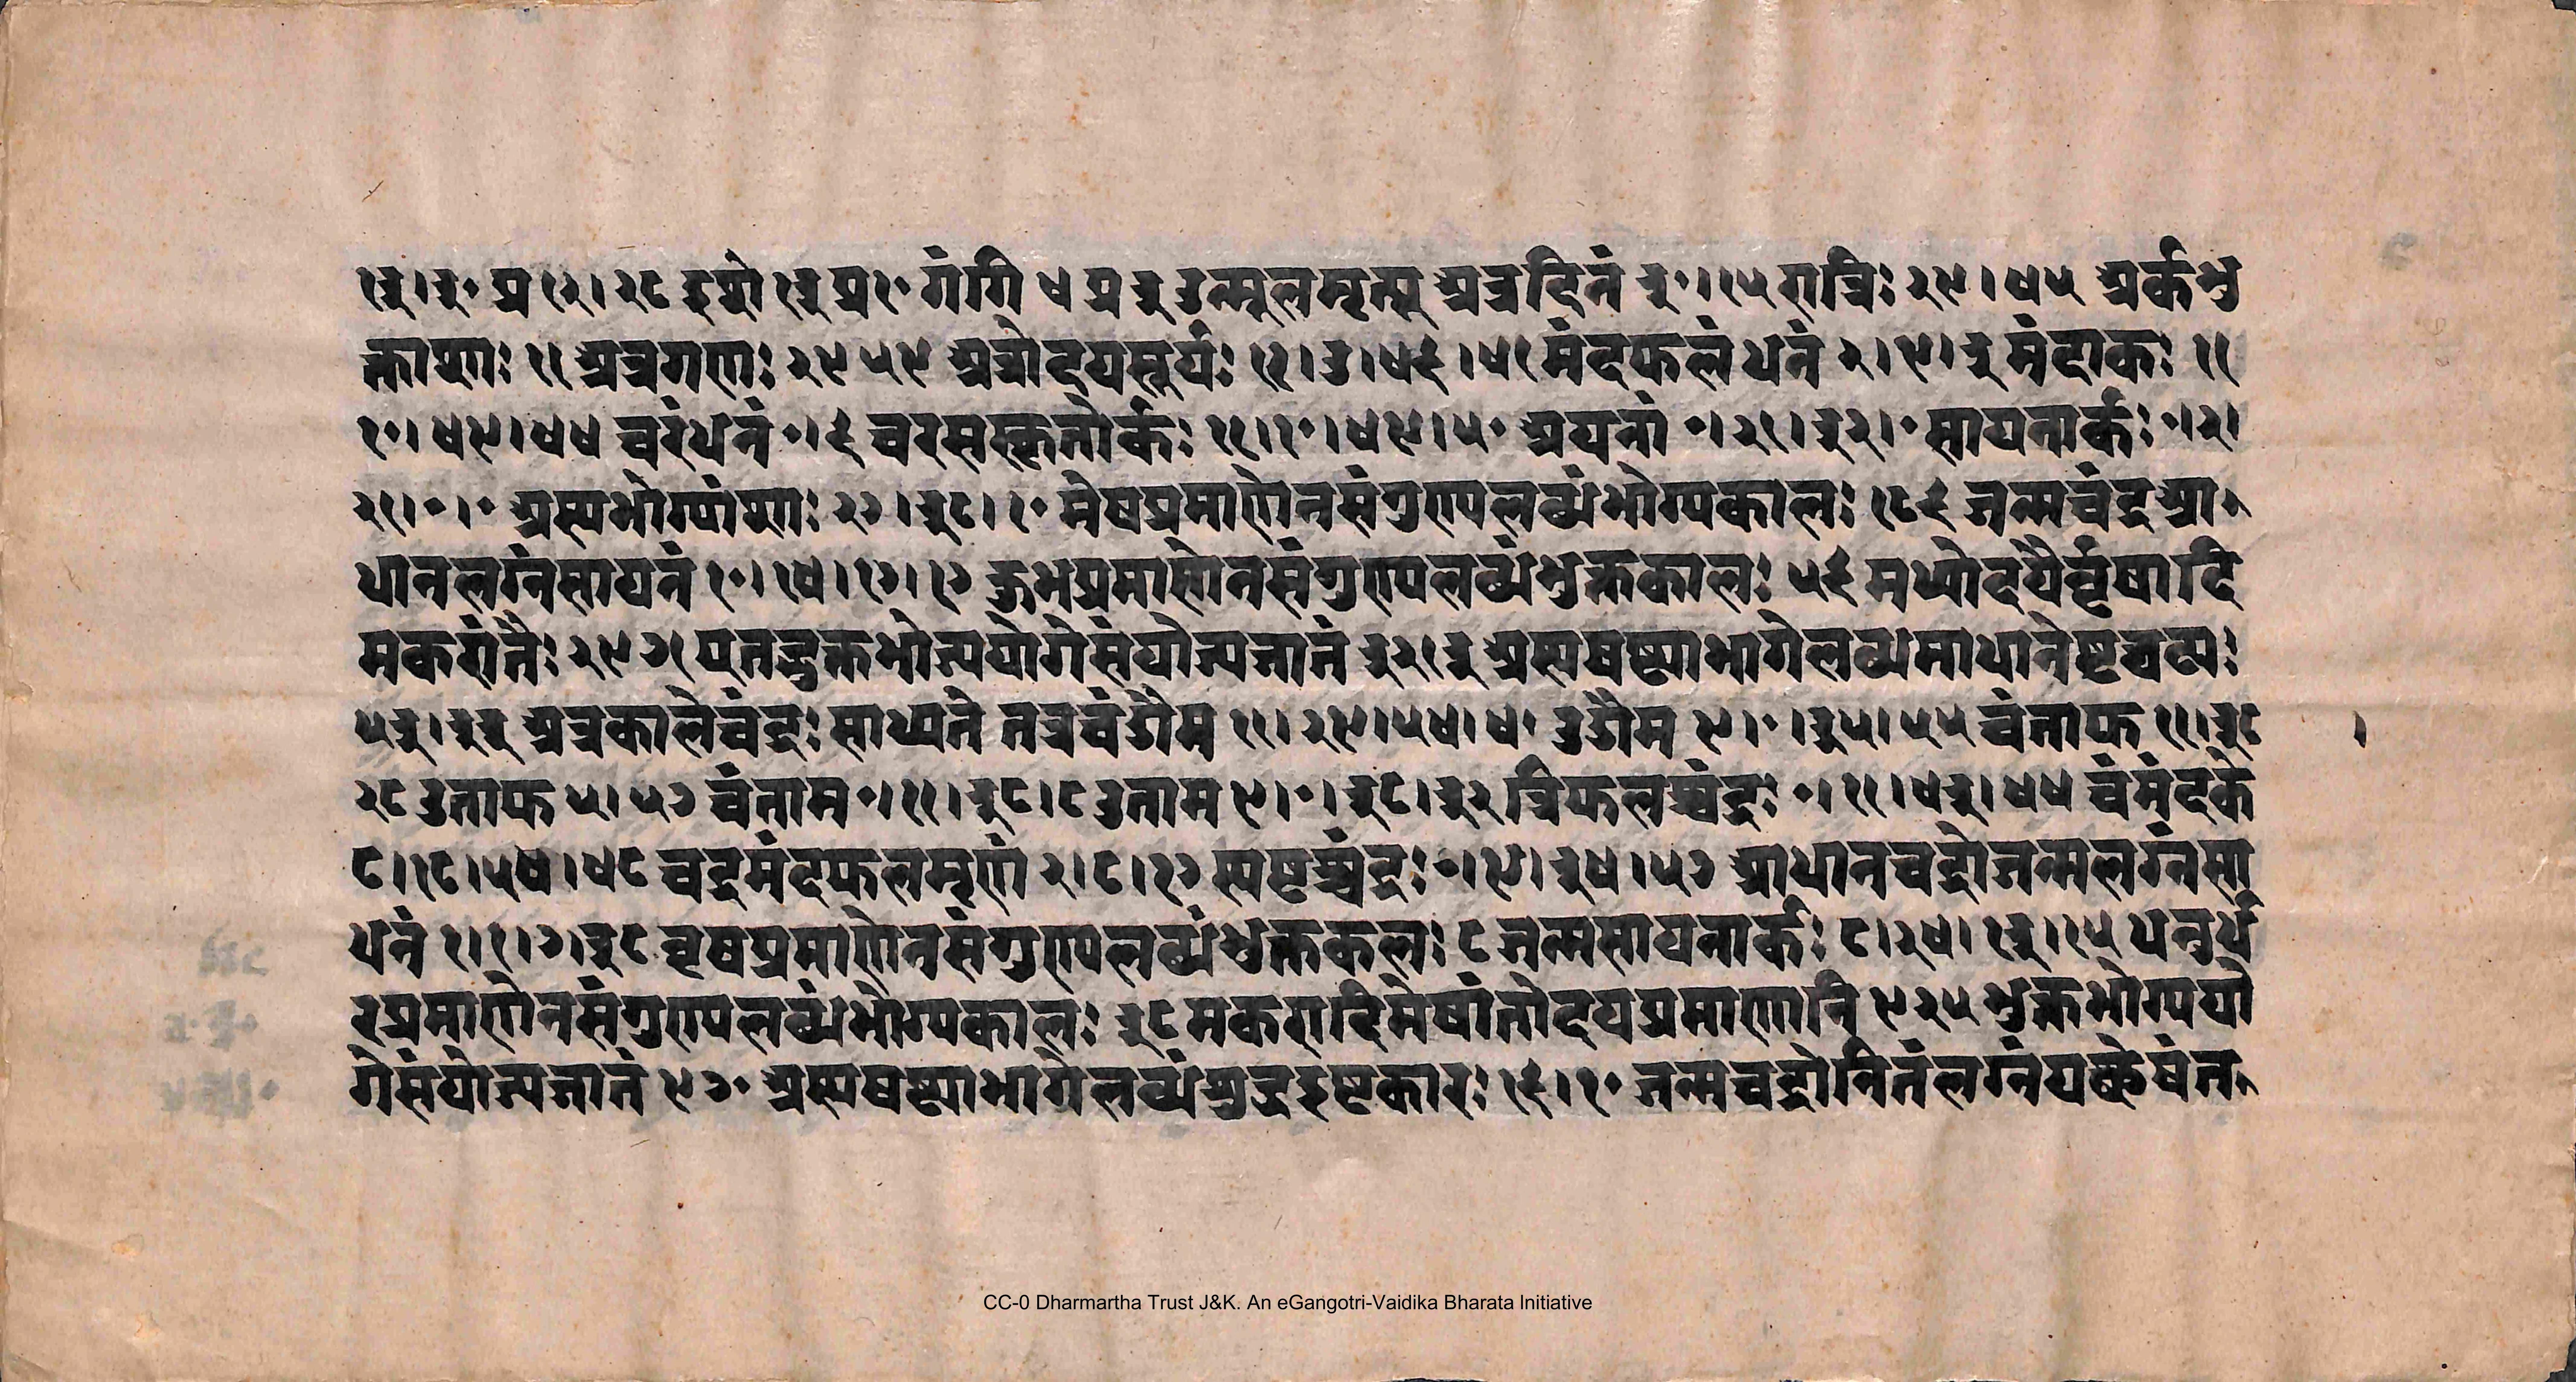 १३।३० प्र १२।२८ इघो १३ प्र १० गंगि ४ प्र ३ उन्मूलमृत्यू अत्रदिनं ३०।१५ रात्रिः २९।४५ अर्कभु
क्तांशाः ११ अत्रगणः २९५९ अत्रोदयसूर्यः १२।७।४६।४१ मंदफलं धनं २।९।३ मंदार्कः ११
१०।४९।४४ चरंधनं ०।६ चरसंस्कृतोर्कः ११।१०।४९।५० अयनां ०।२१।३२।० सायनार्कः ०।२।
२१।०।० अस्यभोग्यांशाः २७।३८।१० मेषप्रमाणेनसंगुण्यलब्धंभोग्यकालः १८६ जन्मचंद्रआ
धानलग्नंसायनं १०।१४।१७।१७ कुंभप्रमाणेनसंगुण्यलब्धंभुक्तकालः ५६ मध्योदयैर्वृषादि
मकरांतैः २९७१ एतद्भुक्तभोज्यायोगेसंयोज्यजातं ३२१३ अस्यषष्ट्याभागेलब्धमाधानेष्टघट्यः
५३।३३ अत्रकालेचंद्रः साध्यते तत्रचंउौम ११।२९।५४।४० उउौम ९।०।३५।५५ चंताफ ११।३८
२८ उताफ ५।५७ चंताम ०।११।३८।८ उताम ९।०।३८।३२ त्रिफलश्चंद्रः ०।११।४३।४४ चंमंदके
८।१८।५४।४८ चद्रमंदफलमृणं २।८।१७ स्पष्टश्चंद्रः ०।९।३४।५७ आधानचद्रोजन्मलग्नंसा
धनं १।१।७।३८ वृषप्रमाणेनसंगुण्यलब्धंभुक्तकलः ८ जन्मसायनार्कः ८।२४।१३।१५ धनुर्ध
रप्रमाणेनसंगुण्यलब्धंभोग्यकालः ३८ मकरादिमेषांतोदयप्रमाणानि ९२५ भुक्तभोग्ययो
गेसंयोज्यजातं ९७० अस्यषष्ट्याभागेलब्धंशुद्धइष्टकारः १६।१० जन्मचद्रोनितंलग्नंयछेषंत
CC-0 Dharmartha Trust J&K. An eGangotri-Vaidika Bharata Initiative